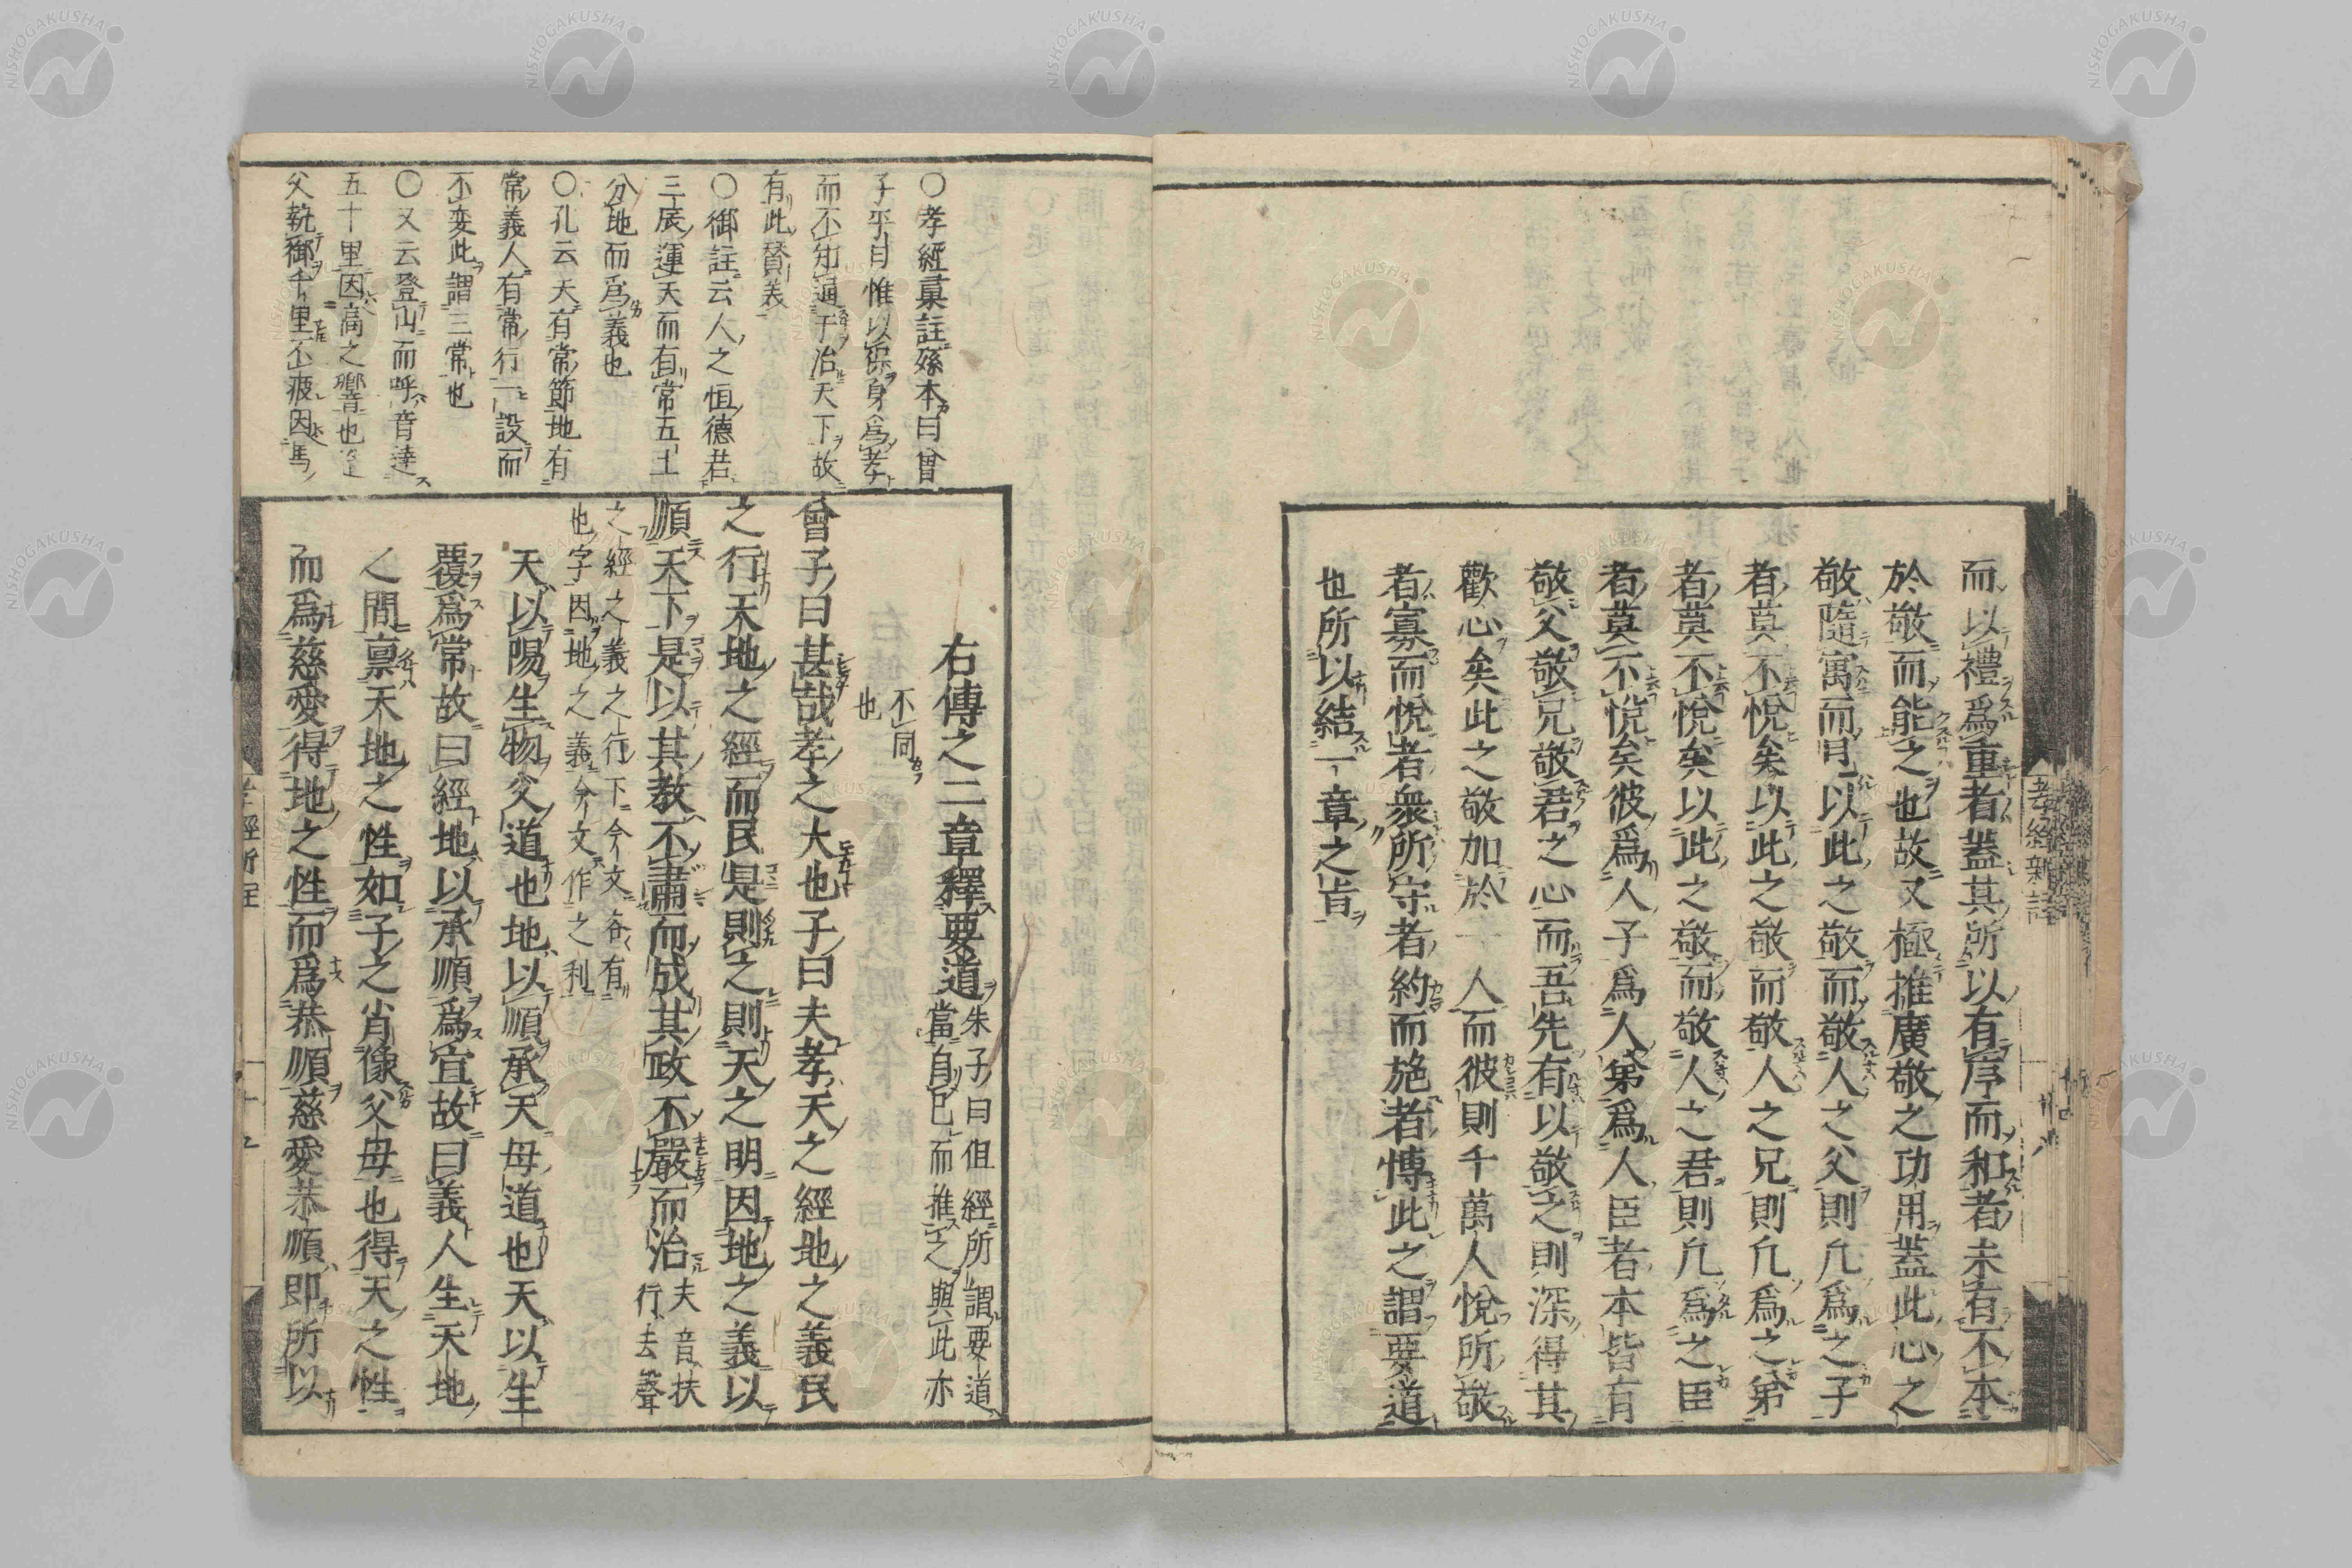 而以禮爲重者蓋其所以有序而和者未有不本
於敬而能之也故又極推廣敬之功用蓋此心之
敬隨寓而見以此之敬而敬人之父則凢爲之子
者莫不悅矣以此之敬而敬人之兄則凢爲之第
者莫不悅矣以此之敬而敬人之君則凢爲之臣
者莫不悅矣彼爲人子爲人第爲人臣者本皆有
敬父敬兄敬君之心而吾先有以敬之則深得其
歡心矣此之敬加於一人而彼則千萬人悅所敬
者寡而悅者衆所守者約而施者愽此之謂要道
也所以結一章之旨
孝經新註
○孝經彚註孫本曰曾
子平日惟以保身爲孝
而不知通于治天下故
有此賛美
○御註云人之恒德若
三辰運天而有常五土
分地而爲義也
○孔云天有常節地有
常義人有常行一設而
不変此謂三常也
○又云登山而呼音達
五十里因高之響也造
父執御千里不疲因馬
右傳之二章釋要道朱子曰但經所謂要道
當自已而推之與此亦
不同
也
曾子曰甚哉孝之大也子曰夫孝天之經地之義民
之行天地之經而民是則之則天之明因地之義以
順天下是以其教不肅而成其政不嚴而治夫音扶
行去聲
之經之義之行下今文各有
也字因地之義今文作之利
天以陽生物父道也地以順承天母道也天以生
覆爲常故曰經地以承順爲宜故曰義人生天地
之間禀天地之性如子之肖像父母也得天之性
而爲慈愛得地之性而爲恭順慈愛恭順即所以